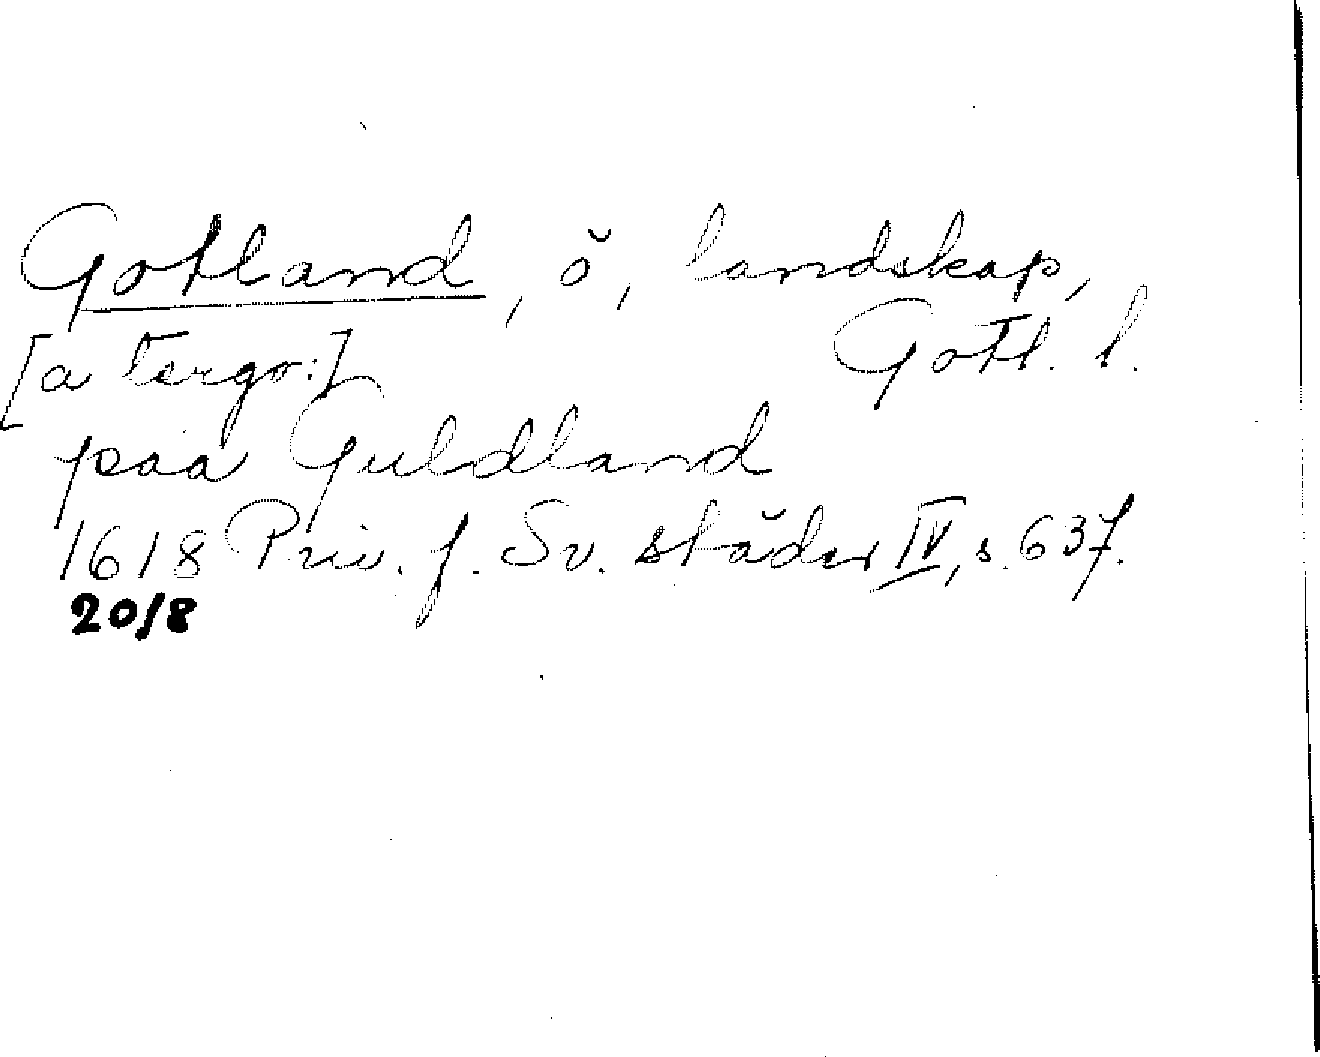 Gotland, ö, landskap,
Gotl. l.
[a tergo:]
paa Guldland
1618 Priv. f. Sv. städer IV, s. 637.
20/8